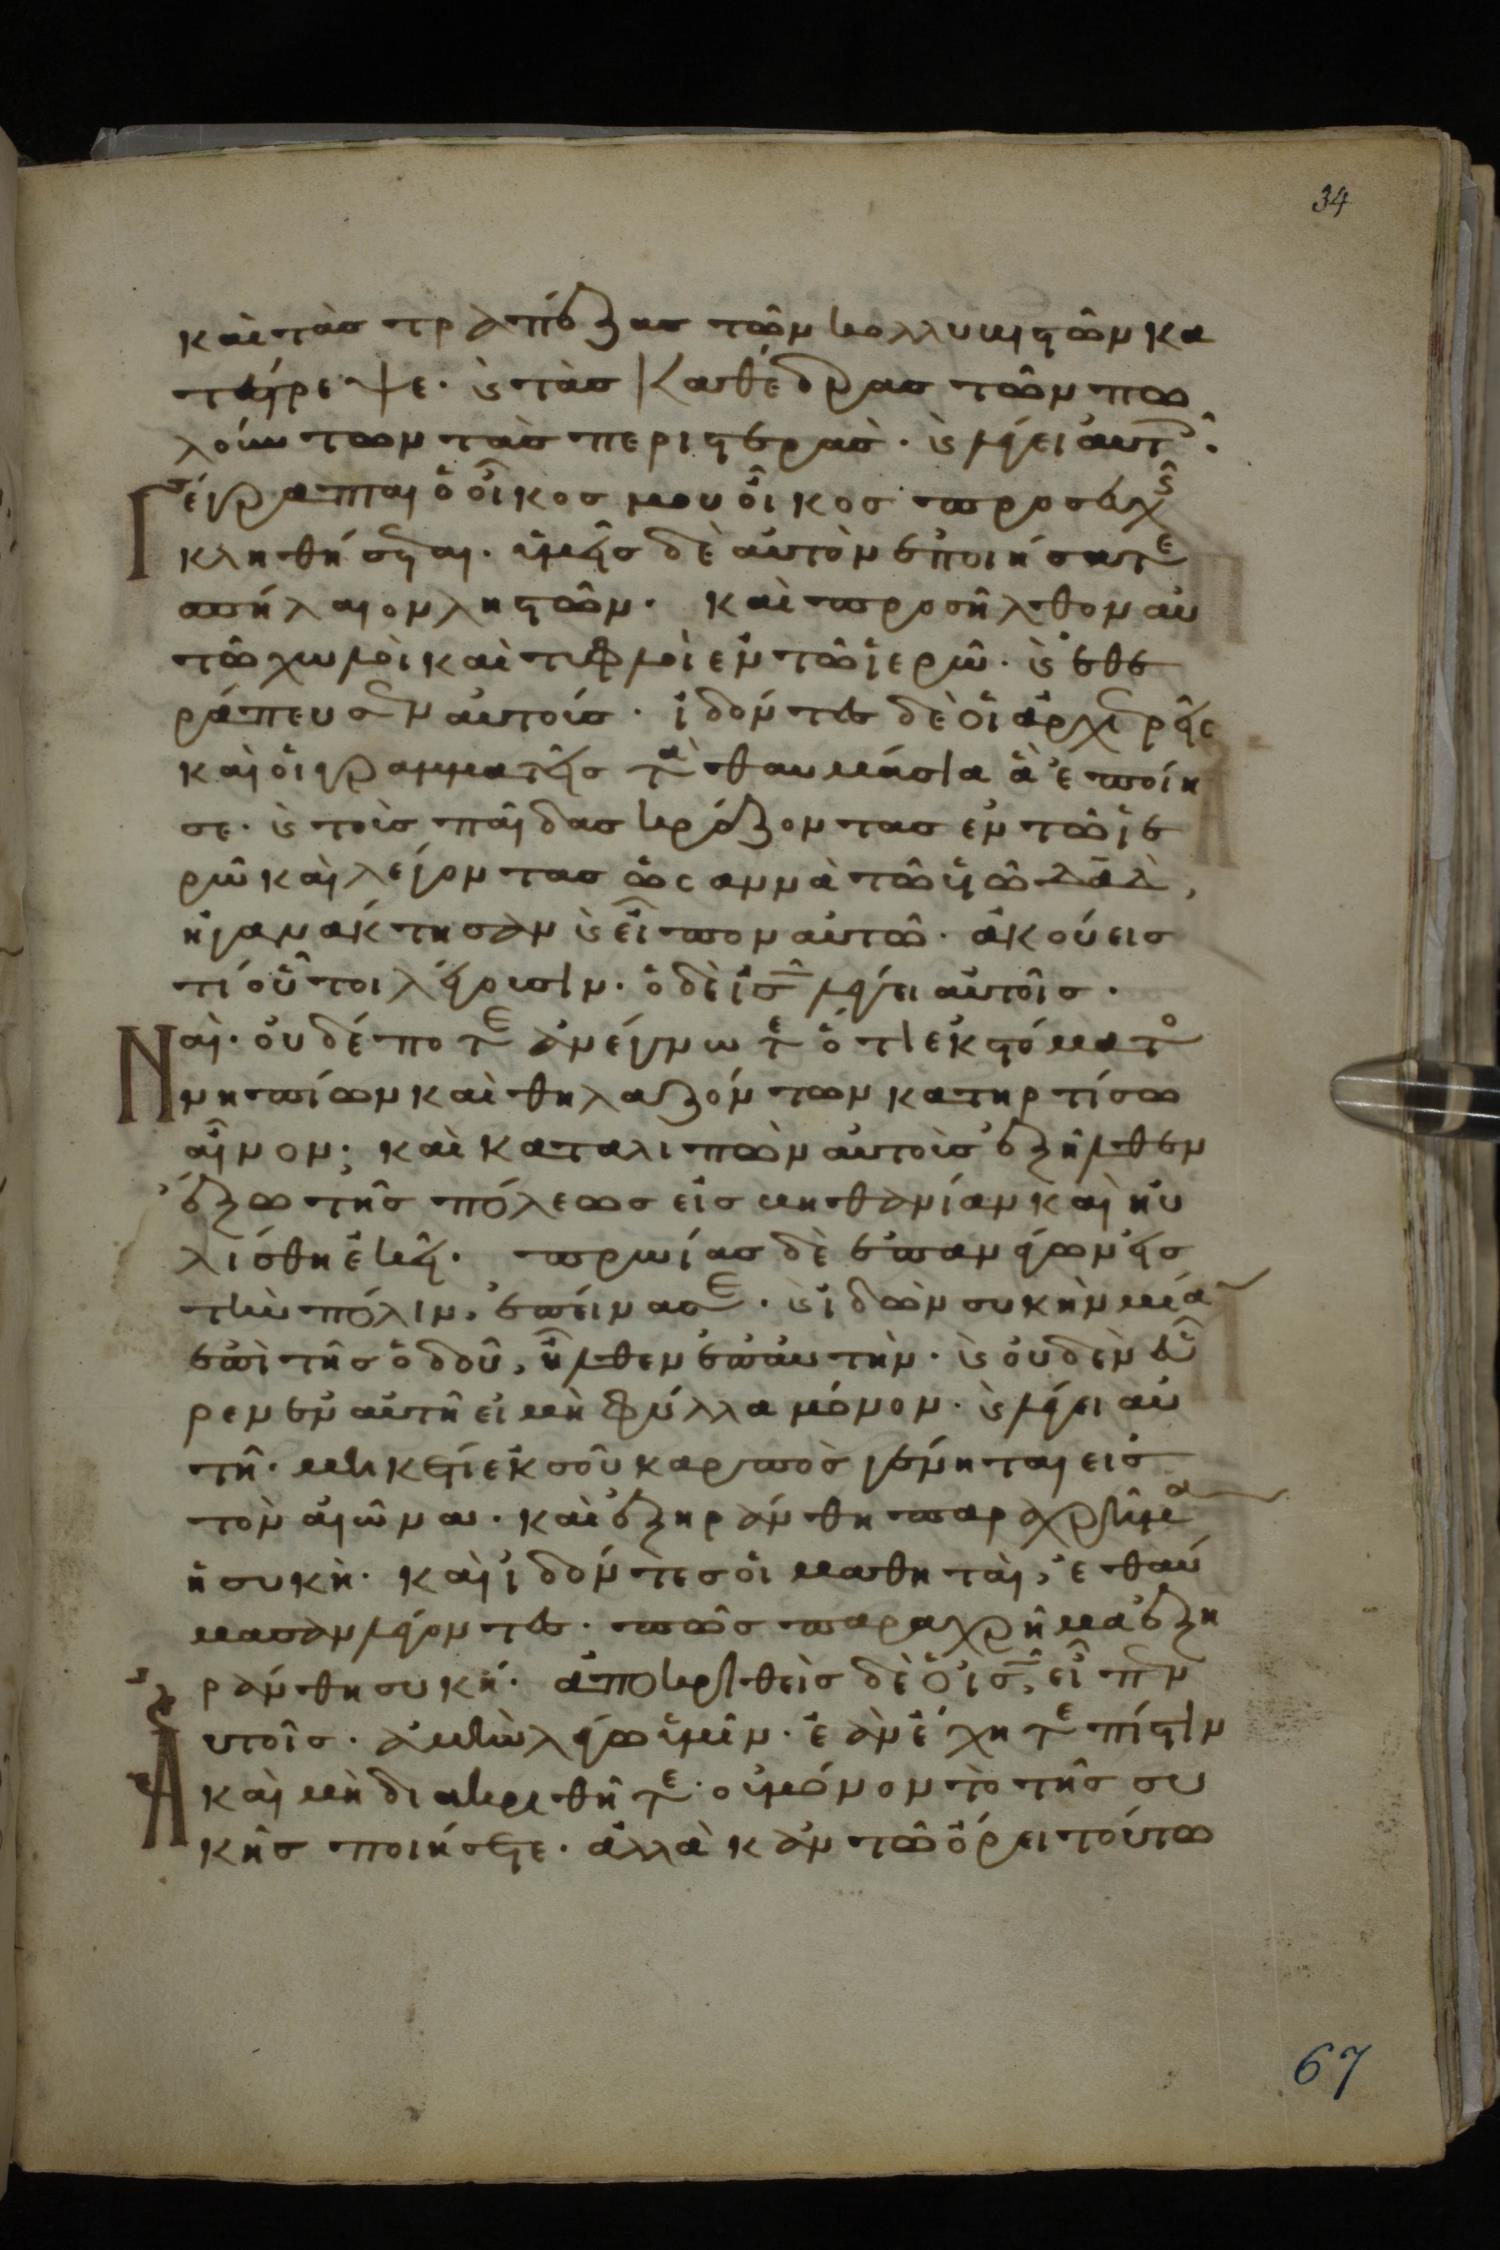 34
καὶ τὰς τραπέζας τῶν κολλυιστῶν κα
τέστρεψε· καὶ τὰς καθέδρας τῶν πω
λούντων τὰς περιστεράς· καὶ λέγει αὐτοῖς·
Γέγραπται ὁ οἶκός μου οἶκος προσευχῆς
κληθήσεται· ὑμεῖς δὲ αὐτὸν ἐποιήσατε
σπήλαιον ληστῶν· καὶ προσῆλθον αὐ
τῶ χωλοὶ καὶ τυφλοὶ ἐν τῶ ἱερῶ· καὶ ἐθε
ράπευσεν αὐτούς· ἰδόντες δὲ οἱ ἀρχιερεῖς
καὶ οἱ γραμματεῖς τὰ θαυμάσια ἃ ἐποίη
σε· καὶ τοὺς παῖδας κράζοντας ἐν τῶ ἱε
ρῶ καὶ λέγοντας ὡσαννὰ τῶ υἱῶ δαδ,
ἠγανάκτησαν καὶ εἶπον αὐτῶ· ἀκούεις
τί οὗτοι λέγουσιν· ὁ δὲ ις λέγει αὐτοῖς·
Ναί· οὐδέποτε ἀνέγνωτε ὅτι ἐκ στόματος
νηπίων καὶ θηλαζόντων κατηρτίσω
αἶνον; καὶ καταλιπὼν αὐτοὺς ἐξῆλθεν
ἔξω τῆς πόλεως εἰς βηθανίαν καὶ ηὐ
λίσθη ἐκεῖ· πρωίας δὲ ἐπανάγων εἰς
τὴν πόλιν, ἐπείνασε· καὶ ἰδὼν συκῆν μίαν
ἐπὶ τῆς ὁδοῦ, ἦλθεν ἐπ' αὐτήν· καὶ οὐδὲν εὗ
ρεν ἐν αὐτῆ εἰ μὴ φύλλα μόνον· καὶ λέγει αὐ
τῆ· μηκέτι ἐκ σοῦ καρπὸς γένηται εἰς
τὸν αἰῶνα· καὶ ἐξηράνθη παραχρῆμα
ἡ συκῆ· καὶ ἰδόντες οἱ μαθηταί, ἐθαύ
μασαν λέγοντες· πῶς παραχρῆμα ἐξη
ράνθη συκῆ· ἀποκριθεὶς δὲ ὁ ις, εἶπεν
Αὐτοῖς· ἀμὴν λέγω ὑμῖν· ἐὰν ἔχητε πίστιν
καὶ μὴ διακριθῆτε· οὐ μόνον τὸ τῆς συ
κῆς ποιήσετε· ἀλλὰ κἂν τῶ ὄρει τούτω
67